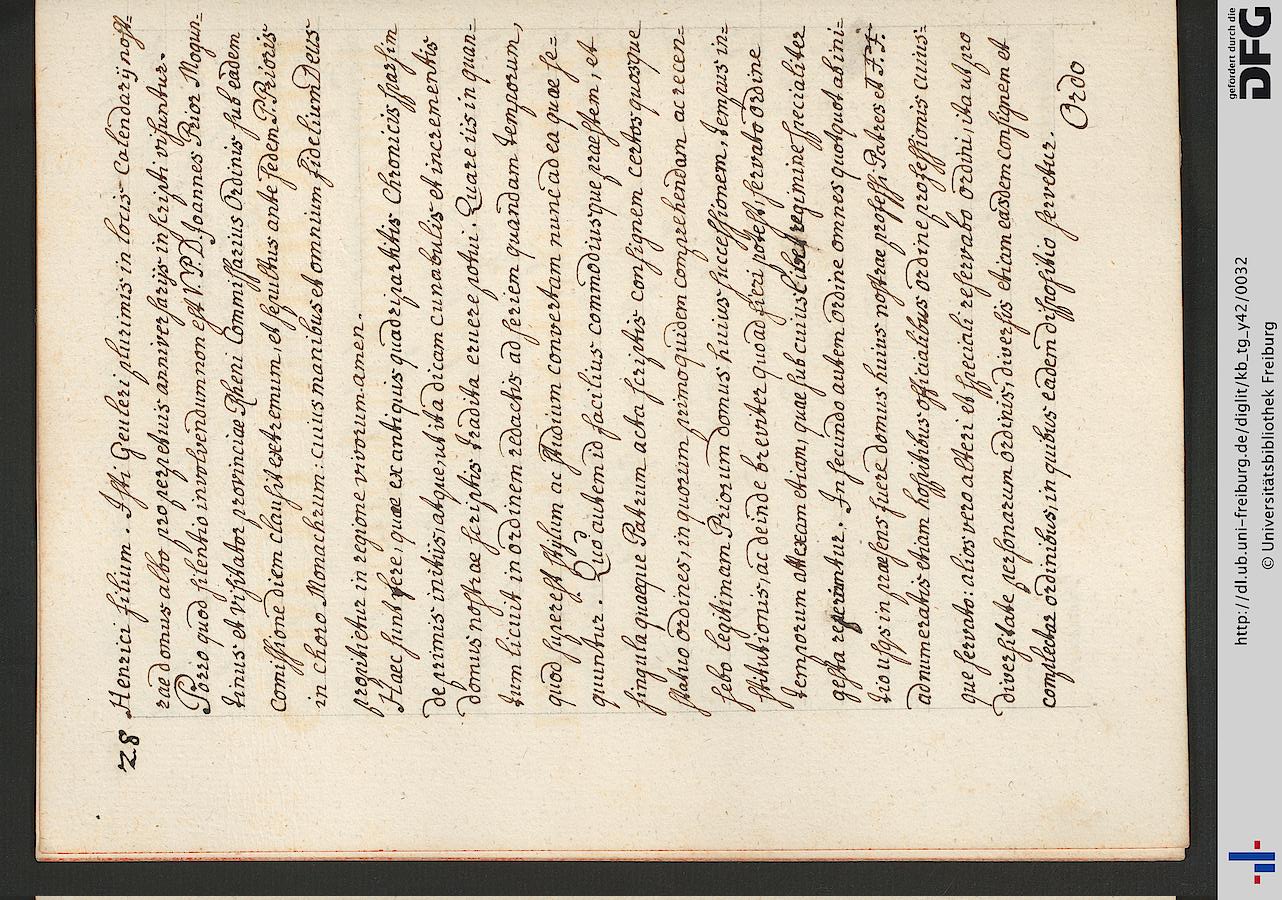 28
Henrici filium. Isti Geuleri plurimis in locis Calendarij nost=
rae domus albo pro perpetuis anniversarijs inscripti visuntur.
Porro quod silentio involvendum non est V. P. D. Joannes Prior Mogun=
tinus et Visitator provinciae Rheni Commissarius Ordinis sub eadem
Comissione diem clausit extremum, et sepultus ante sedem P. Prioris
in choro Monachrum: cuius manibus et omnium fidelium Deus
propitietur in regione vivorum amen.
Haec sunt fere, quae ex antiquis quadripartitis Chronicis sparsim
de primis initiis, atque, ut ita dicam cunabulis et incrementis
domus nostrae scriptis tradita eruere potui. Quare iis in quan=
tum licuit in ordinem redactis ad seriem quandam temporum,
quod superest stilum ac studium convertam nunc ad ea quae se=
quuntur. Quo autem id facilius commodiusque praestem, et
singula quaeque Patrum acta scriptis consignem certos quosque
statuo ordines, in quorum primo quidem comprehendam ac recen=
sebo legitimam Priorum domus huius successionem, demus in=
stitutionis, ac deinde breviter quoad fieri potest, servato ordine
temporum attexam etiam, quae sub cuiuslibet regimine specialiter
gesta reperiuntur. In secundo autem Ordine omnes quotquot ab ini=
tio usque in praesens fuere domus huius nostrae professi Patres et F. F.
adnumeratis etiam hospitibus officialibus ordine professionis cuius=
que servato: alios vero alteri et speciali reservabo Ordini, ita ut pro
diversitate personarum ordinis, diversis etiam easdem consignem et
complectar ordinibus, in quibus eadem dispositio servetur.
Ordo
gefördert durch die
DFG
http://dl.ub.uni-freiburg.de/diglit/kb_tg_y42/0032
© Universitätsbibliothek Freiburg